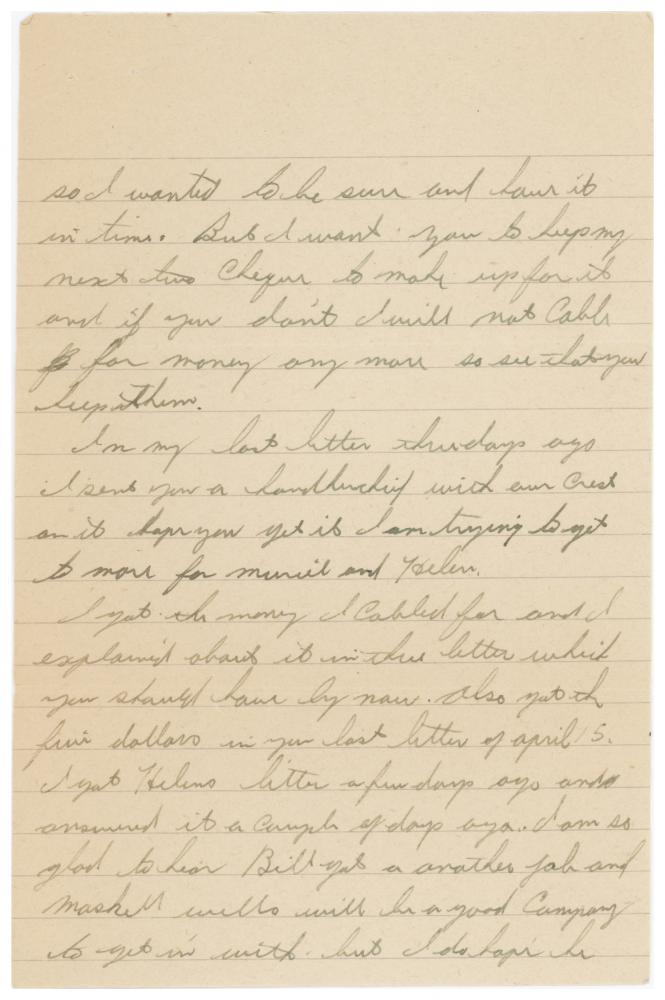 so I wanted to be sure and have it
in time. But I want you to keep my
next two Cheque to make up for it
and if you don't I will not Cable
for money any more so see that you
keep them.
In my last letter three days ago
I sent you a handkerchief with our Crest
on it hope you get it I am trying to get
to more for muriel and Helen.
I got the money I Cabled for and I
explained about it in three letter which
you should have by now. Also got the
five dollars in your last letter of april 15.
I got Helens letter a few days ago and
answered it a couple of days ago. I am so
glad to hear Bill got a another job and
Maskell wells will be a good Company
to get in with. but I do hope he